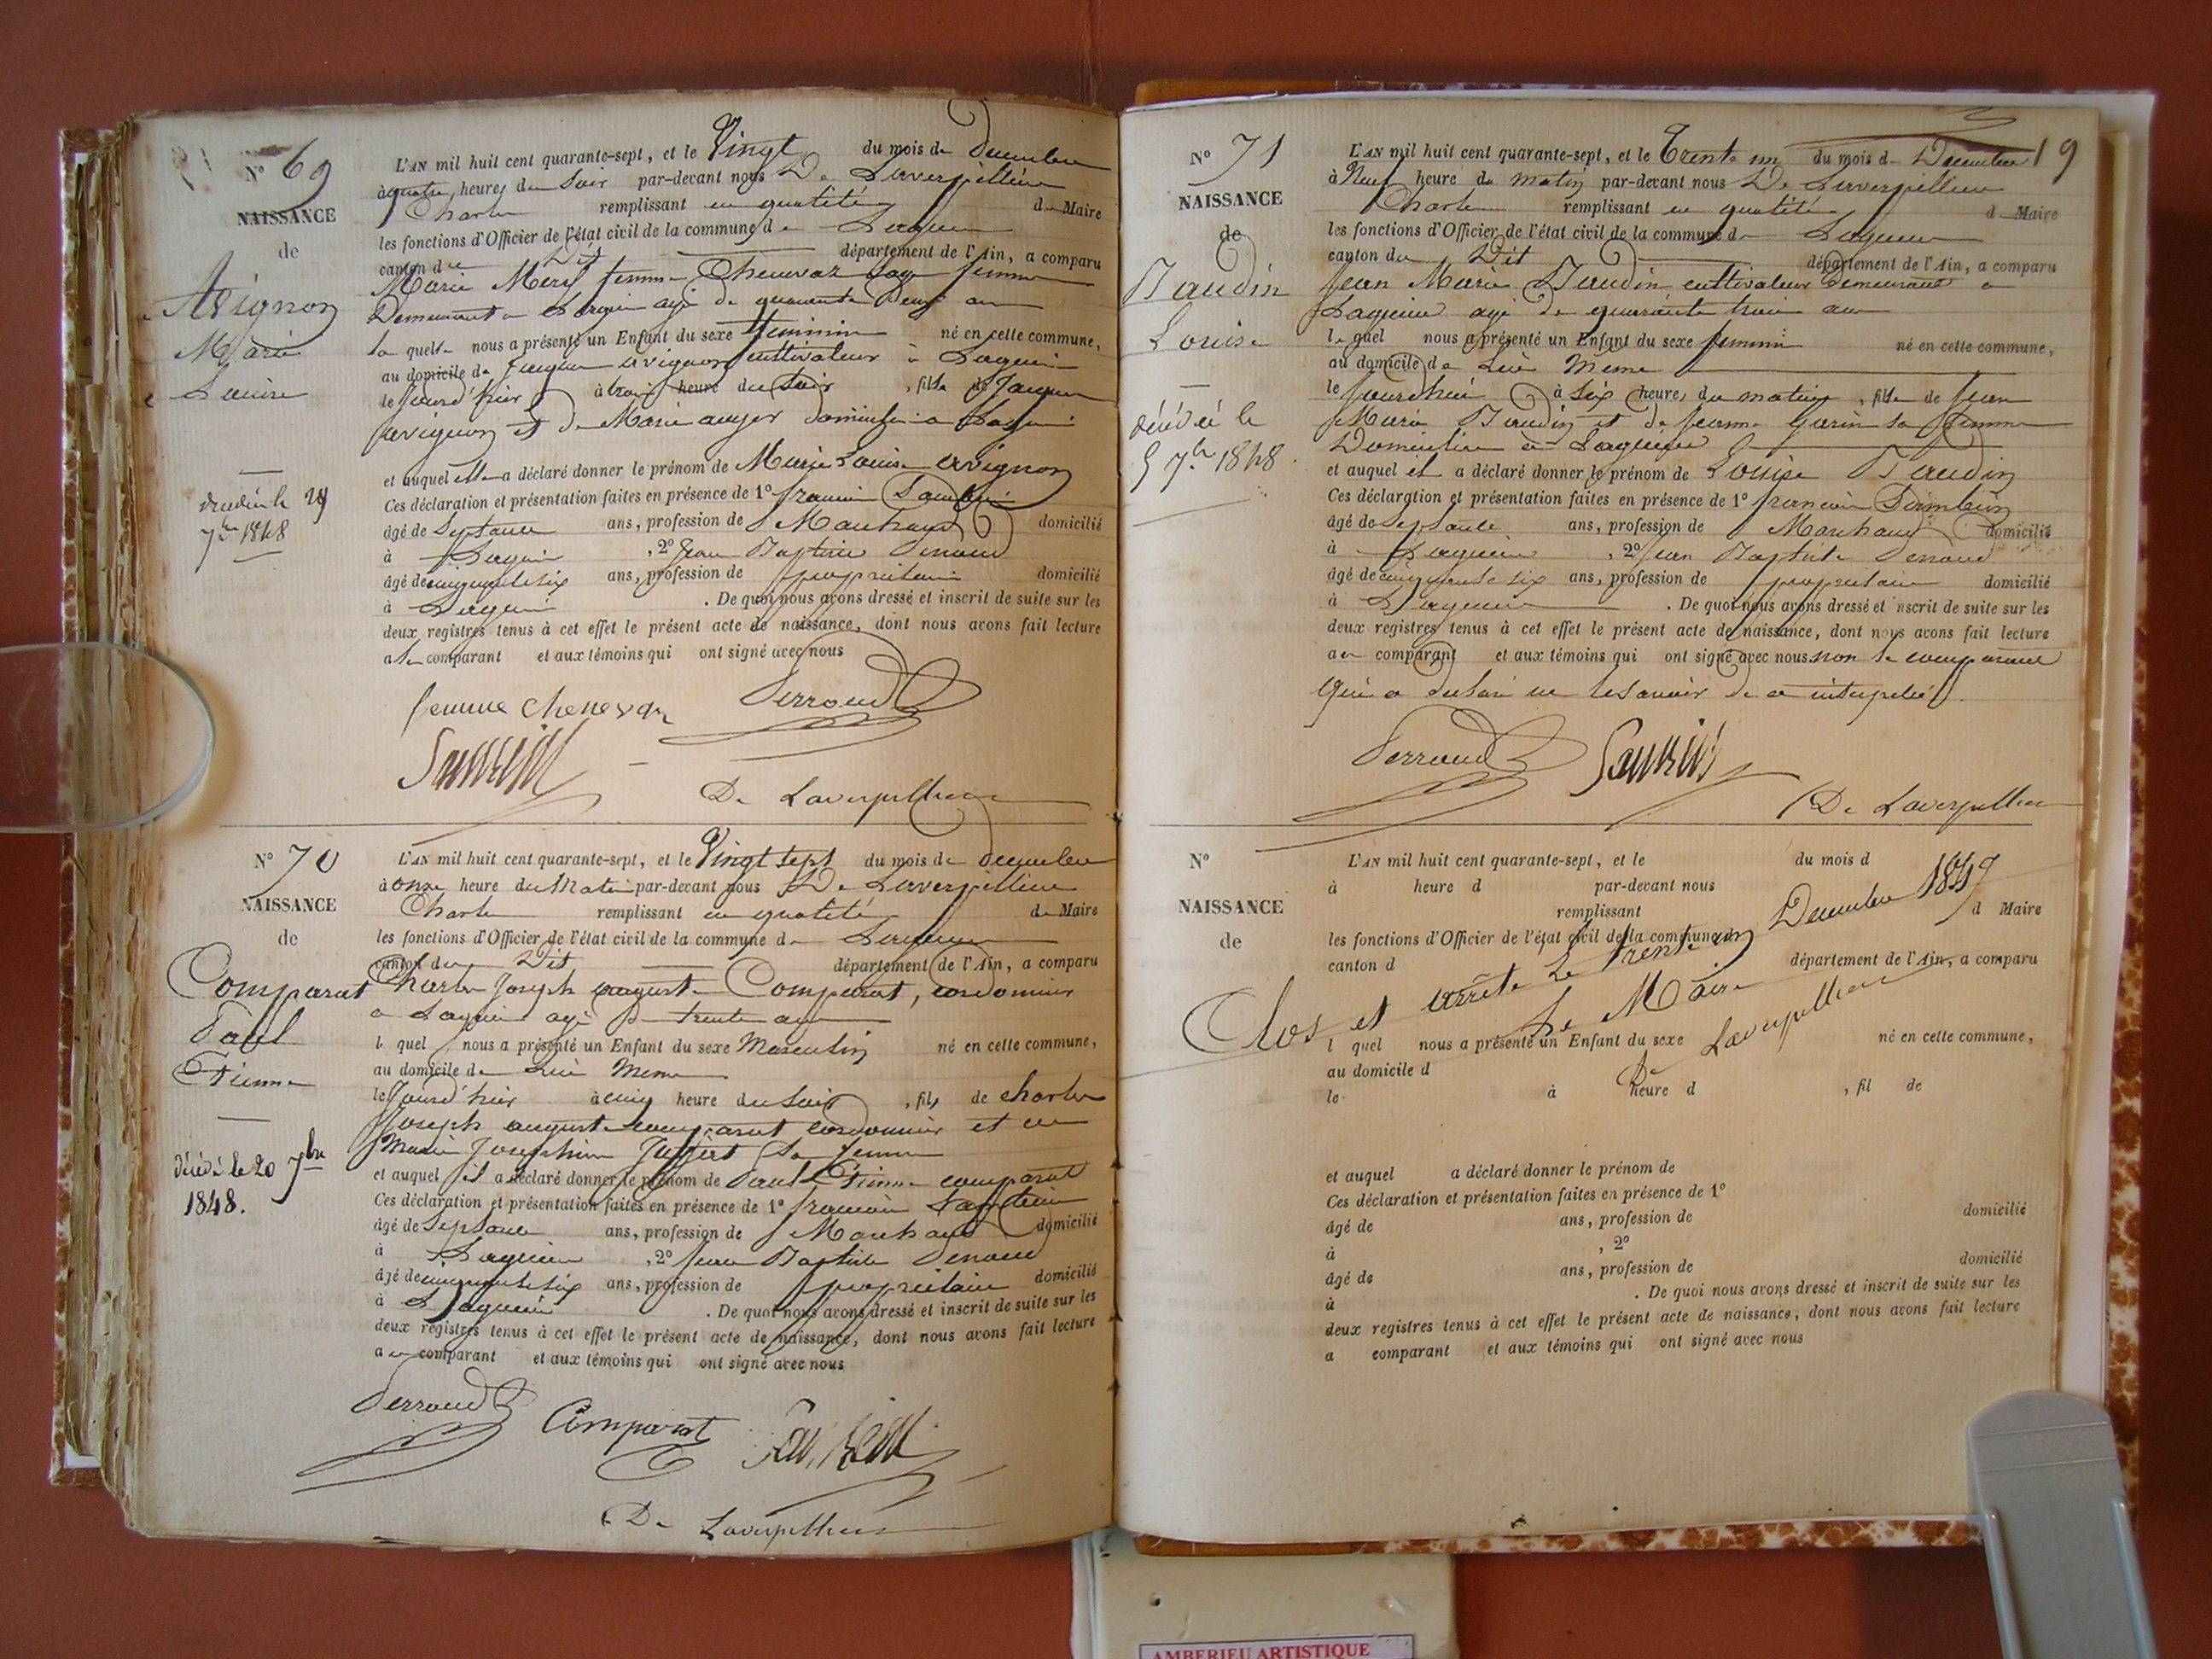 N° 69
NAISSANCE
de
Avignon
Marie
Louise
décédée le
7bre 1848
L'AN mil huit cent quarante-sept, et le Vingt du mois de Decembre
à quatre heures du Soir par-devant nous De Laverpilliere
Charles remplissant en qualité de Maire
les fonctions d'Officier de l'état civil de la commune de Lagnieu
canton du Dit département de l'Ain, a comparu
Marie femme Chenevaz Sage femme
Demeurant a Lagnieu agé de quarante Deux ans
la quelle nous a présenté un Enfant du sexe feminin né en cette commune,
au domicile de Jacques avignon cultivateur à Lagnieu
le Jourd'hier à trois heure du Soir, fille de Jacques
avignon et de Marie auger domicilié a Lagnieu
et auquel elle a déclaré donner le prénom de Marie Louise avignon
Ces déclaration et présentation faites en présence de 1° francois
âgé de Septante ans, profession de Marchand domicilié
à Lagnieu, 2° Jean Baptiste Perroud
âgé de cinquante six ans, profession de propriétaire domicilié
à Lagnieu. De quoi nous avons dressé et inscrit de suite sur les
deux registres tenus à cet effet le présent acte de naissance, dont nous avons fait lecture
a la comparant et aux témoins qui ont signé avec nous
femme chenevaz Perroud
De Laverpilliere
N° 70
NAISSANCE
de
Comparat
Paul
Etienne
décédé le 20 7bre
1848.
L'AN mil huit cent quarante-sept, et le Vingt sept du mois de decembre
à onze heure du Matin par-devant nous De Laverpilliere
Charles remplissant en qualité de Maire
les fonctions d'Officier de l'état civil de la commune de Lagnieu
canton du Dit département de l'Ain, a comparu
Charles Joseph august Comparat, cordonnier
a Lagnieu agé de trente ans
l quel nous a présenté un Enfant du sexe Masculin né en cette commune,
au domicile de Lui Meme
le Jourd'hier à cinq heure du Soir, fils de charles
Joseph august comparat cordonnier et de
Marie Josephine Sa femme
et auquel il a déclaré donner le prénom de Paul Etienne comparat
Ces déclaration et présentation faites en présence de 1° francois
âgé de Septante ans, profession de Marchand domicilié
à Lagnieu, 2° Jean Baptiste Perroud
âgé de cinquante six ans, profession de propriétaire domicilié
à Lagnieu. De quoi nous avons dressé et inscrit de suite sur les
deux registres tenus à cet effet le présent acte de naissance, dont nous avons fait lecture
au comparant et aux témoins qui ont signé avec nous
Perroud Comparat
De Laverpilliere
19
N° 71
NAISSANCE
de
Baudin
Louise
décédée le
5 7bre 1848.
L'AN mil huit cent quarante-sept, et le Trente un du mois de Decembre
à Neuf heure du matin par-devant nous De Laverpilliere
Charles remplissant en qualité de Maire
les fonctions d'Officier de l'état civil de la commune de Lagnieu
canton du Dit département de l'Ain, a comparu
Jean Marie Baudin cultivateur demeurant a
Lagnieu agé de quarante trois ans
le quel nous a présenté un Enfant du sexe feminin né en cette commune,
au domicile de Lui Meme
le Jourd'hui à Six heures du matin, fille de Jean
Marie Baudin et de Jeanne Garin sa femme
Domicilié a Lagnieu
et auquel il a déclaré donner le prénom de Louise Baudin
Ces déclaration et présentation faites en présence de 1° francois
âgé de septante ans, profession de Marchand domicilié
à Lagnieu, 2° Jean Baptiste Perroud
âgé de cinquante six ans, profession de propriétaire domicilié
à Lagnieu. De quoi nous avons dressé et inscrit de suite sur les
deux registres tenus à cet effet le présent acte de naissance, dont nous avons fait lecture
au comparant et aux témoins qui ont signé avec nous non le comparant
Qui a declaré ne le savoir de ce interpellé
Perroud
De Laverpilliere
N°
NAISSANCE
de
L'AN mil huit cent quarante-sept, et le du mois d
à heure d par-devant nous
remplissant d Maire
les fonctions d'Officier de l'état civil de la commune d
canton d département de l'Ain, a comparu
Clos et arrêté Le trente un Decembre 1847
Le Maire
De Laverpilliere
l quel nous a présenté un Enfant du sexe né en cette commune,
au domicile d
le à heure d, fil de
et auquel a déclaré donner le prénom de
Ces déclaration et présentation faites en présence de 1°
âgé de ans, profession de domicilié
à, 2°
âgé de ans, profession de domicilié
à. De quoi nous avons dressé et inscrit de suite sur les
deux registres tenus à cet effet le présent acte de naissance, dont nous avons fait lecture
a comparant et aux témoins qui ont signé avec nous
AMBERIEU ARTISTIQUE